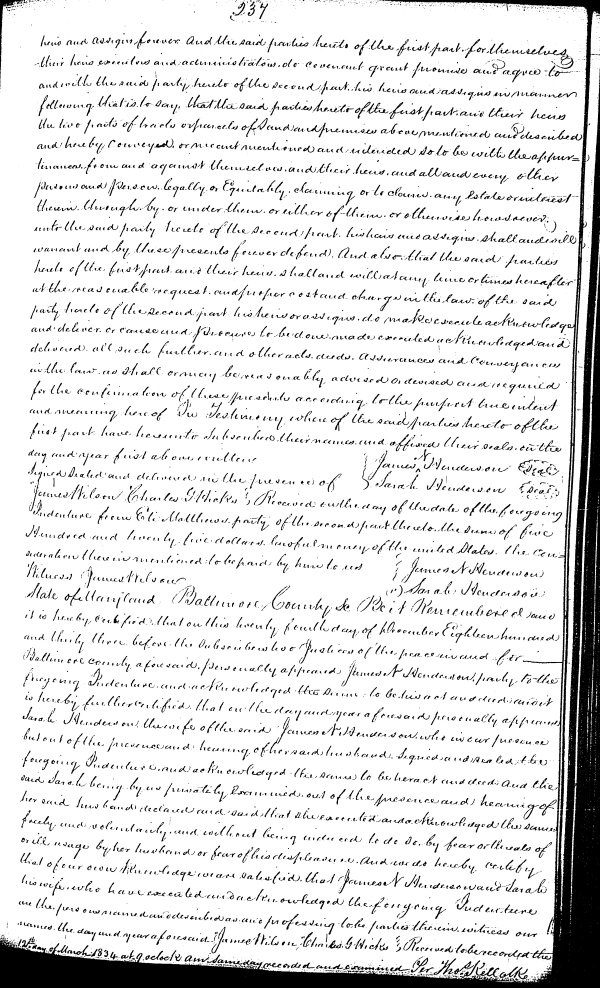 237
heirs and assigns forever And the said parties hereto of the first part. for themselves
their heirs executors and administrators. do covenant grant promise and agree to
and with the said party hereto of the second part. his heirs and assigns in manner
following that is. to say, that the said parties hereto of the first part. and their heirs
the two parts of tracts or parcels of Land and premises above mentioned and described
and hereby conveyed, or meant mentioned and intended so to be with the appur=
tenances. from and against themselves. and their heirs. and all and every other
persons and person. legally or Equitably. claiming or to claim. any Estate or interest
therein. through. by. or under them. or either of them. or otherwise howsoever.
unto the said party hereto of the second part. his heirs and assigns. shall and will
warrant and by these presents forever defend. And also. that the said parties
hereto of the first part. and their heirs. shall and will at any time or times hereafter
at the reasonable request. and proper cost and charge in the law. of the said
party hereto of the second part his heirs or assigns. do make execute acknowledge
and deliver. or cause and procure to be done made executed acknowledged and
delivered. all such further and other acts. deeds. assurances and conveyances
in the law. as shall or may be. reasonably advised or devised and required
for the confirmation of these presents according to the purport true intent
and meaning hereof In Testimony where of the said parties hereto of the
first part have hereunto subscribed. their names. and affixed their seals. on the
day and year first above written James N Henderson (Seal)
Signed Sealed and delivered in the presence of Sarah Henderson (Seal)
James Wilson Charles G Hicks Received on the day of the date of the foregoing
Indenture from Eli Matthews. party. of the second part thereto. the sum of five
Hundred and twenty five dollars. lawful money of the united States. the con=
sideration therein mentioned to be paid by him to us James N Henderson
Witness James Wilson Sarah Henderson
State of Maryland Baltimore. County. Sc Be it Remembered and
it is hereby certified. that on this twenty fourth day of December Eighteen hundred
and thirty three. before the Subscribers two Justices of the peace in and for
Baltimore county aforesaid. personally appeared James N Henderson. party to the
foregoing Indenture and acknowledged the same to be his act and deed. and it
is hereby further certified that on the day and year aforesaid personally appeared
Sarah Henderson. the wife of the said James N. Henderson. who in our presence
but out of the presence and hearing of her said husband. signed and sealed. the
foregoing Indenture. and acknowledged. the same to be her act and deed. And the
said Sarah being by us privately Examined. out of the presence and hearing of
her said husband declared and said that she executed and acknowledged the same
freely and voluntarily and without being induced to do so. by fear or threats of
or ill usage by her husband or fear of his displeasure. And we do hereby certify
that of our own knowledge we are satisfied. that James N Henderson and Sarah
his wife. who have executed and acknowledged the foregoing Indenture
are the persons named and described as and professing to be parties therein. witness our
names. the day and year aforesaid James Wilson. Charles G Hicks Received to be recorded the
12th day of March 1834 at 9 oclock am. same day recorded and examined Per Thos Kell Clk